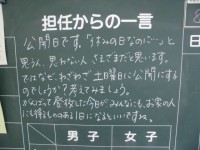 担任からの一言
公開日です。「休みの日なのに…」と
思う人、思わない人、さまざまだと思います。
ではなぜ、わざわざ土曜日に公開にする
のでしょうか？考えてみましょう。
がんばって登校した今日が、みんなにも、お家の人
にも得るものある1日になるといいですね。
男子
女子